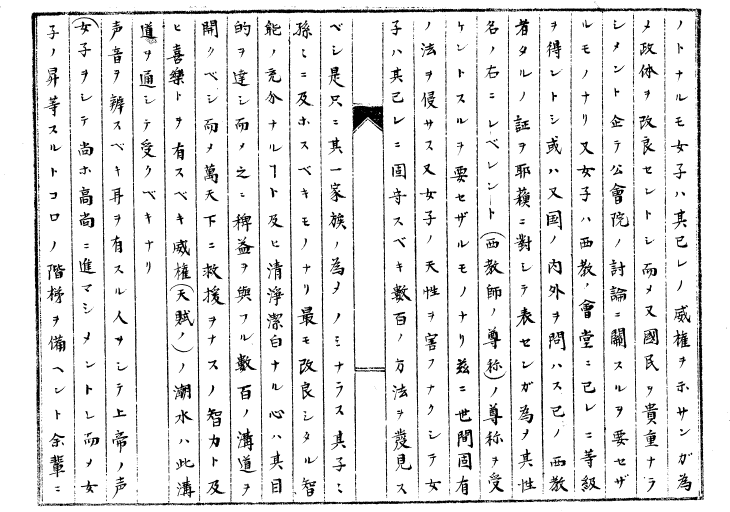 ノトナルモ女子ハ其已レノ威権ヲ示サンガ為
メ政体ヲ改良セントシ而メ又國民ヲ貴重ナラ
シメント企テ公會院ノ討論ニ關スルヲ要セザ
ルモノナリ又女子ハ西教ノ會堂ニ己レニ等級
ヲ得レトシ或ハ又国ノ内外ヲ問ハス已ノ西教
者タルノ証ヲ耶蘓ニ對シテ表センガ為ヲ其性
名ノ右ニレベレント(西教師ノ尊称)ノ尊称ヲ受
ケントスルヲ要セザルモノナリ茲ニ世間固有
ノ法ヲ侵サス又女子ノ天性ヲ害フナクシテ女
子ハ其已レニ固守スベキ數百ノ方法ヲ發見ス
ベシ是只ニ其一家族ノ為メノミナラス其子ミ
孫ミニ及ホスベキモノナリ最モ改良シタル智
能ノ充分ナルヿト及ヒ清淨潔白ナル心ハ其目
的ヲ達シ而メ之ニ稗益ヲ與フル數百ノ溝道ヲ
開クベシ而メ萬天下ニ救援ヲナスノ智力ト及
ヒ喜樂トヲ有スベキ威権(天賦ノ)ノ潮水ハ此溝
道ヲ通シテ受クベキナリ
声音ヲ辨スベキ耳ヲ有スル人ヲシテ上帝ノ声
(女子ヲシテ尚ホ高尚ニ進マシメントレ而メ女
子ノ昇等スルトコロノ階梯ヲ備ヘント余輩ニ